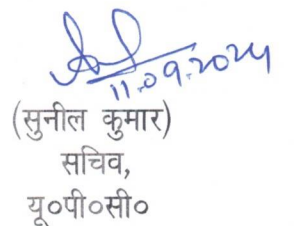 11.09.2024
(सुनील कुमार)
सचिव,
यू०पी०सी०